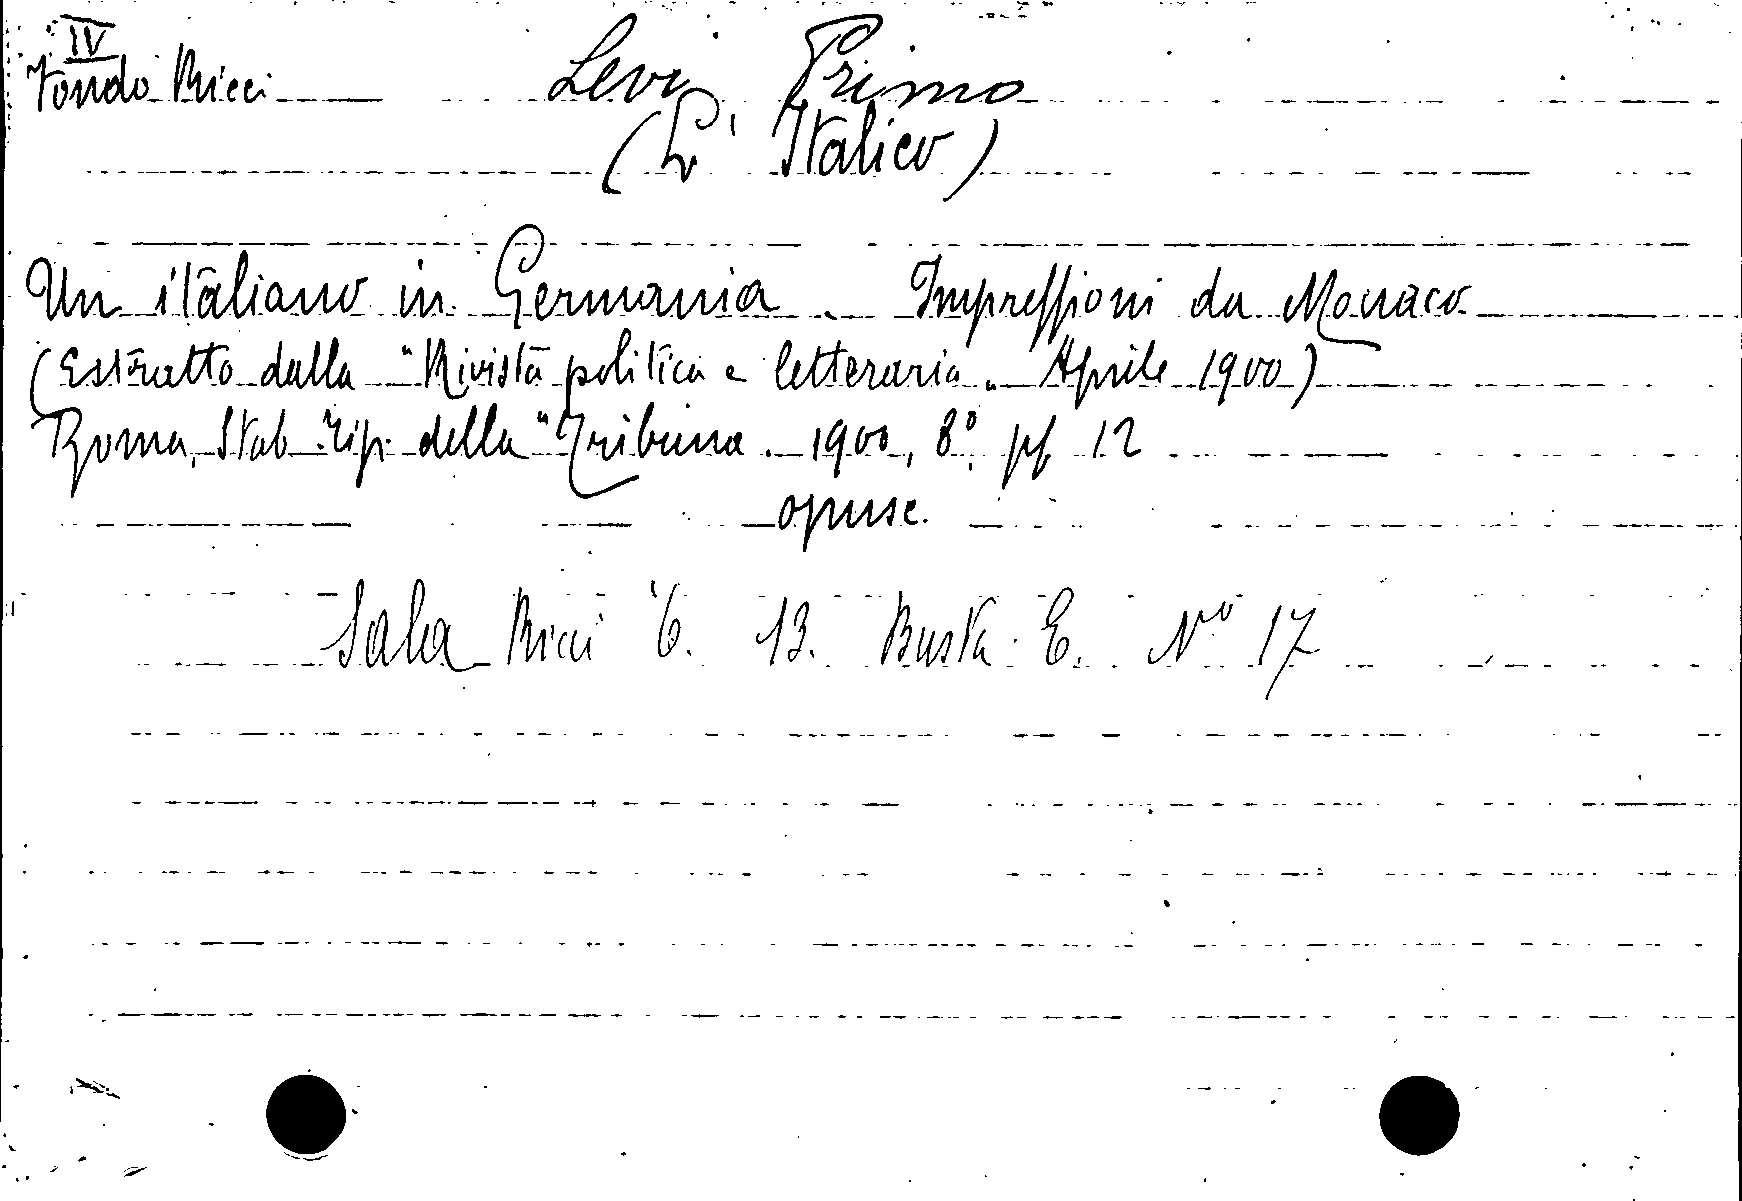 IV
Fondo Ricci
Levi, Primo
(L'Italico)
Un italiano in Germania. Impressioni da Monaco
(Estratto dalla "Rivista politica e letteraria" Aprile 1900)
Roma, Stab. Tip. della "Tribuna. 1900, 8°, pp. 12
opusc.
Sala Ricci 6. 13. Busta E. N° 17